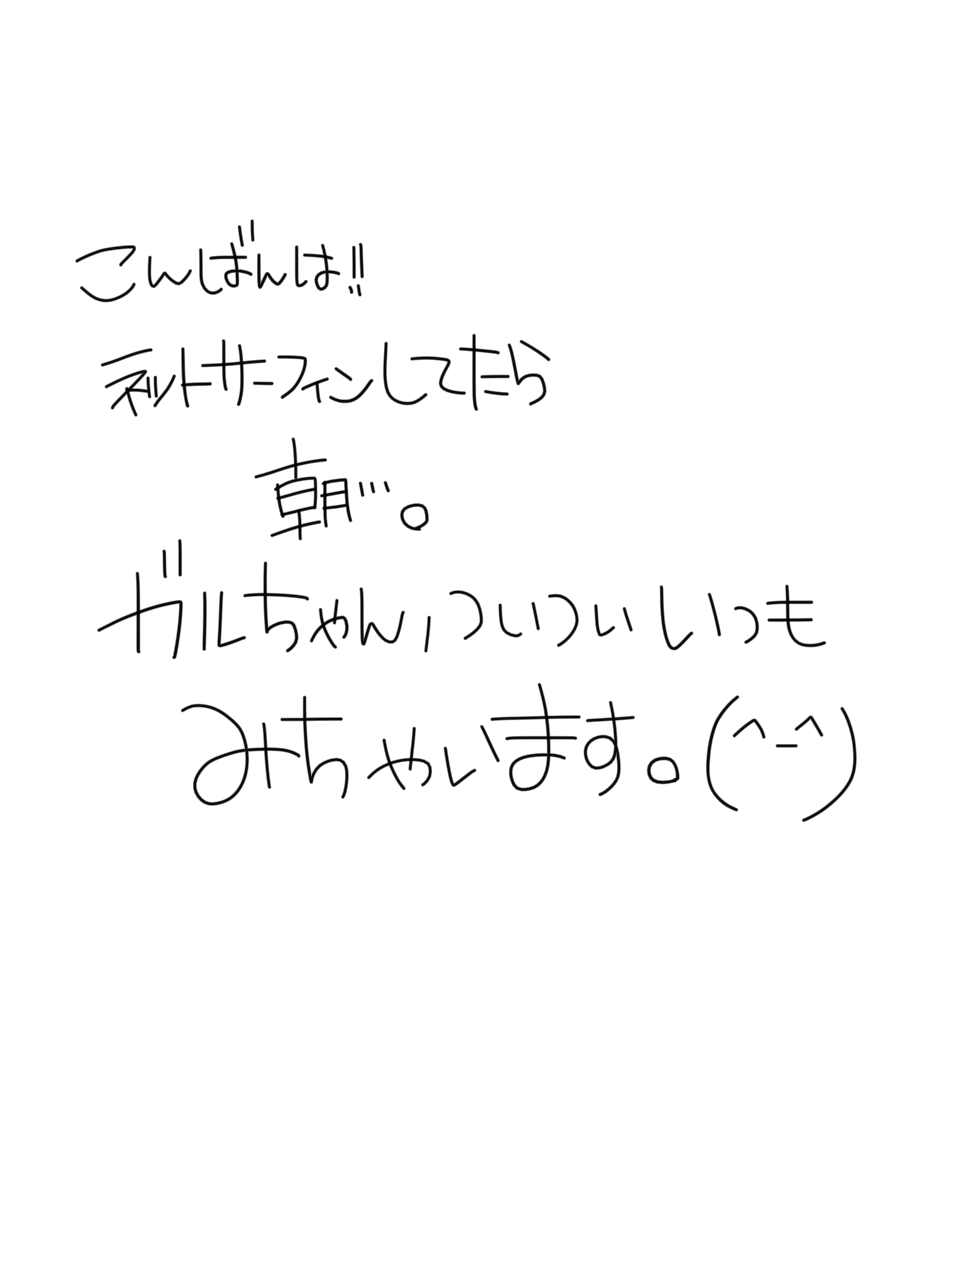 こんばんは!!
ネットサーフィンしてたら
朝…。
ガルちゃん,ついついいつも
みちゃいます。(^-^)